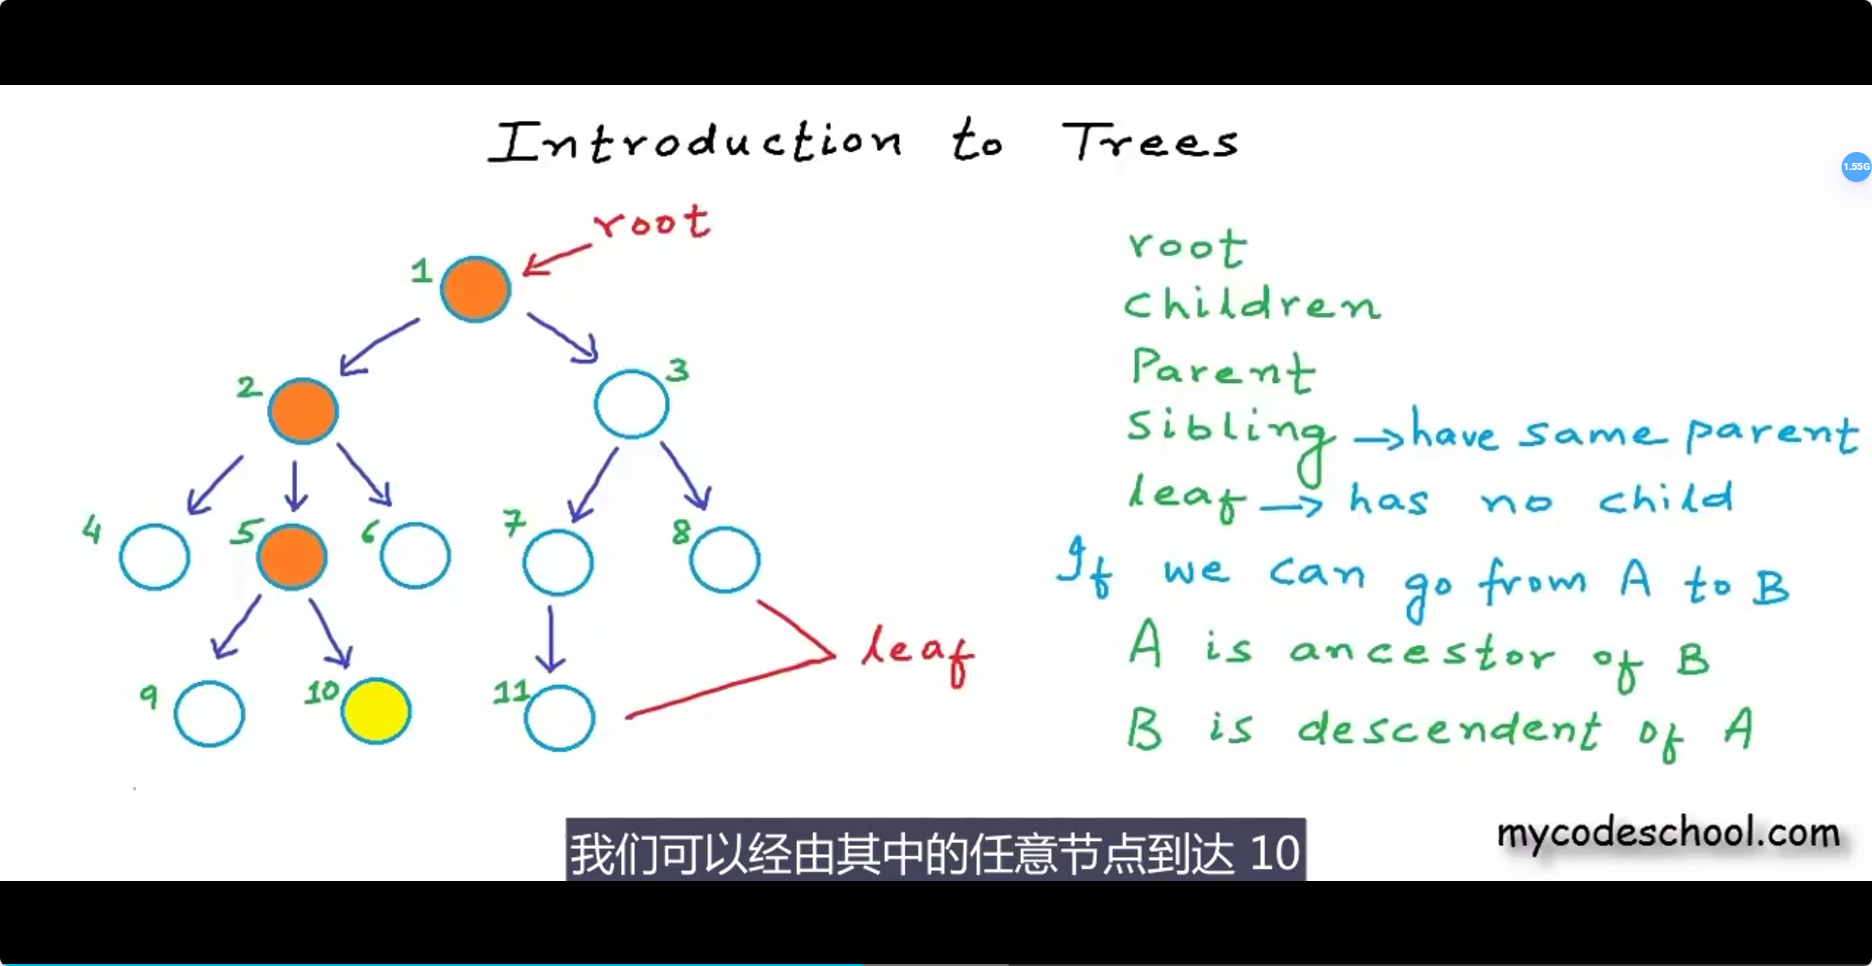 Introduction to Trees
1.55G
root
1
2
3
4
5
6
7
8
9
10
11
leaf
root
children
Parent
Sibling → have same parent
leaf → has no child
If we can go from A to B
A is ancestor of B
B is descendent of A
mycodeschool.com
我们可以经由其中的任意节点到达 10